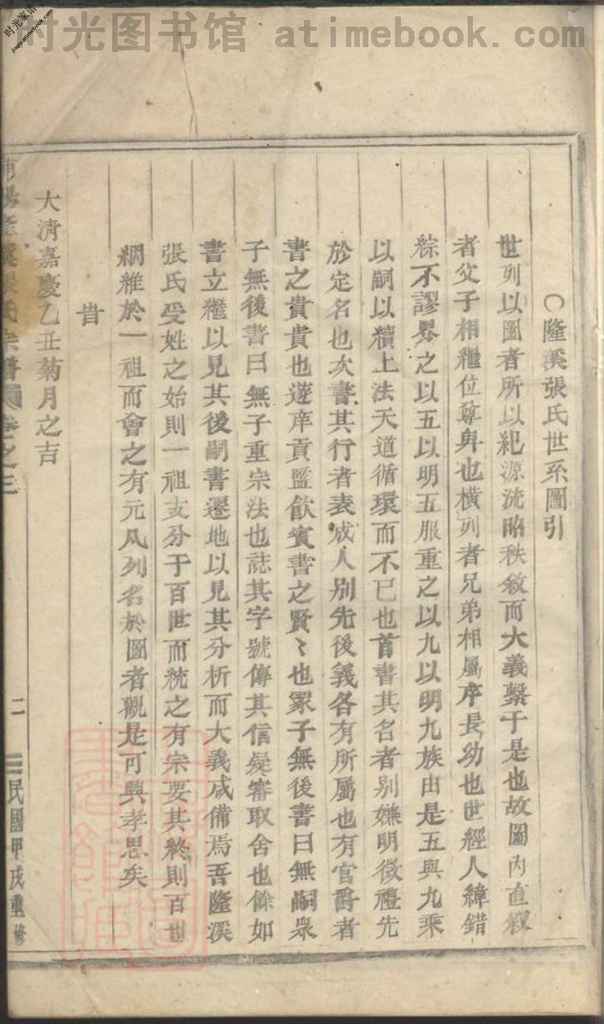 时光图书馆 atimebook.com
○隆溪張氏世系圖引
世列以圖者所以紀源流昭秩敘而大義繫于是也故圖內直縱
者父子相繼位尊卑也橫列者兄弟相屬序長幼也世經人緯錯
綜不謬界之以五以明五服重之以九以明九族由是五與九乘
以嗣以續上法天道循環而不已也首書其名者別嫌明微禮先
於定名也次書其行者表成人別先後義各有所屬也有官爵者
書之貴貴也遊庠貢監飲賓書之賢〻也冢子無後書曰無嗣衆
子無後書曰無子重宗法也誌其字號傳其信疑審取舍也餘如
書立繼以見其後嗣書遷地以見其分析而大義咸備焉吾隆溪
張氏受姓之始則一祖支分于百世而統之有宗要其終則百世
綱維於一祖而會之有元凡列名於圖者觀是可興孝思矣
旹
大清嘉慶乙丑菊月之吉
氏宗譜 卷之三
二
民國甲戌重修